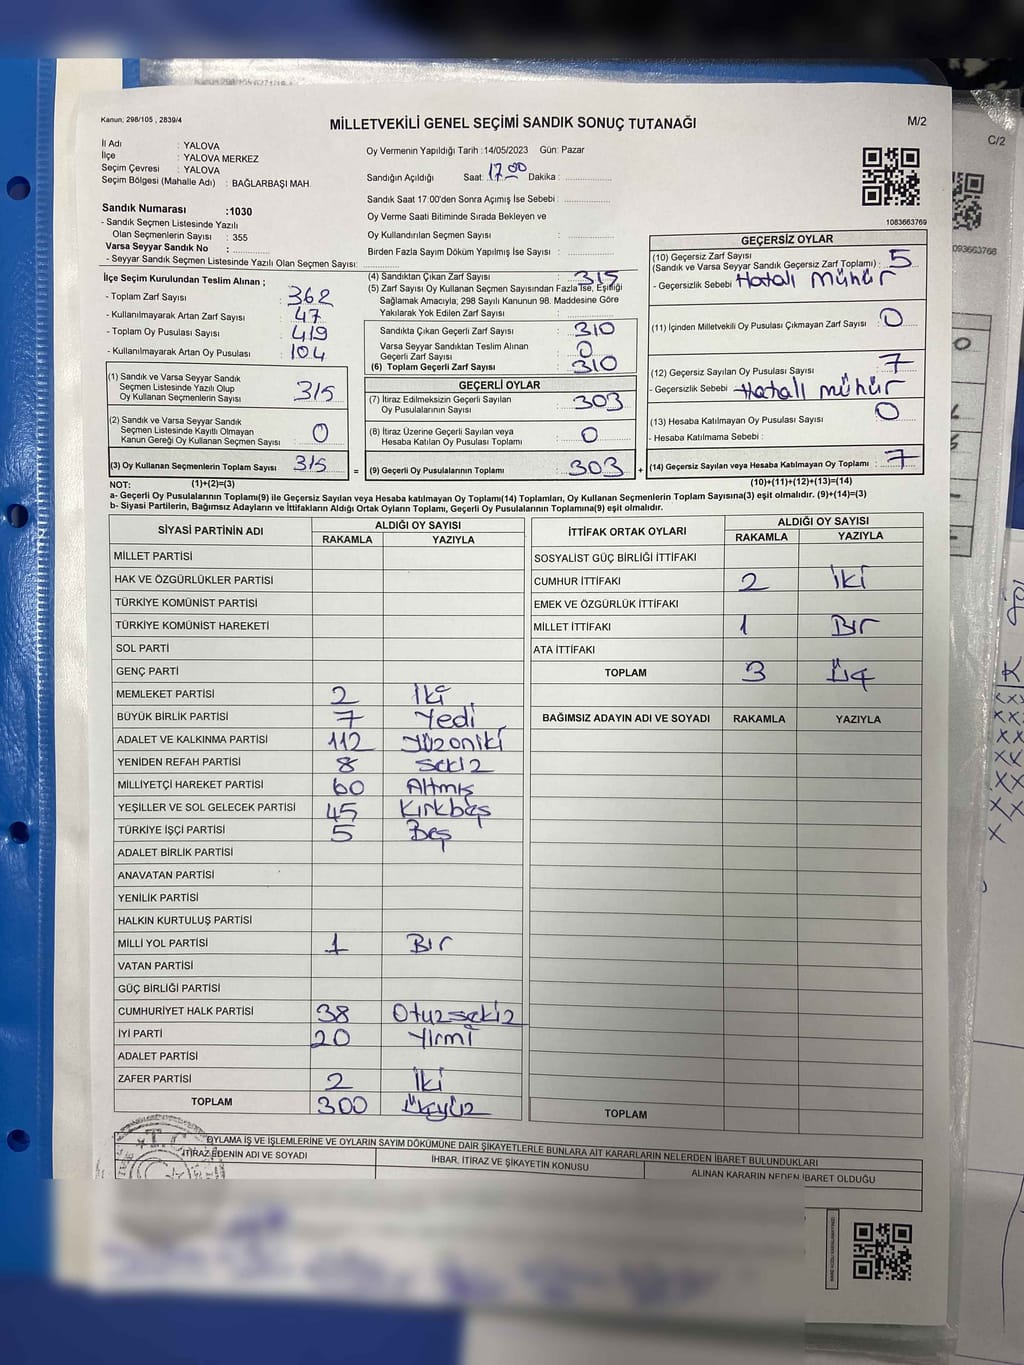 Kanun; 298/105 , 2839/4
MİLLETVEKİLİ GENEL SEÇİMİ SANDIK SONUÇ TUTANAĞI
M/2
C/2
İl Adı : YALOVA
İlçe : YALOVA MERKEZ
Seçim Çevresi : YALOVA
Seçim Bölgesi (Mahalle Adı) : BAĞLARBAŞI MAH.
Oy Vermenin Yapıldığı Tarih :14/05/2023 Gün: Pazar
Sandığın Açıldığı Saat: 17.00 Dakika :
Sandık Saat 17:00'den Sonra Açımış İse Sebebi :
Oy Verme Saati Bitiminde Sırada Bekleyen ve
Oy Kullandırılan Seçmen Sayısı :
Birden Fazla Sayım Döküm Yapılmış İse Sayısı :
1083663769
093663768
Sandık Numarası :1030
- Sandık Seçmen Listesinde Yazılı
Olan Seçmenlerin Sayısı : 355
Varsa Seyyar Sandık No :
- Seyyar Sandık Seçmen Listesinde Yazılı Olan Seçmen Sayısı:
İlçe Seçim Kurulundan Teslim Alınan ;
- Toplam Zarf Sayısı : 362
- Kullanılmayarak Artan Zarf Sayısı : 47
- Toplam Oy Pusulası Sayısı : 419
- Kullanılmayarak Artan Oy Pusulası : 104
(1) Sandık ve Varsa Seyyar Sandık
Seçmen Listesinde Yazılı Olup
Oy Kullanan Seçmenlerin Sayısı : 315
(2) Sandık ve Varsa Seyyar Sandık
Seçmen Listesinde Kayıtlı Olmayan
Kanun Gereği Oy Kullanan Seçmen Sayısı : 0
(3) Oy Kullanan Seçmenlerin Toplam Sayısı : 315
(4) Sandıktan Çıkan Zarf Sayısı : 315
(5) Zarf Sayısı Oy Kullanan Seçmen Sayısından Fazla İse, Eşitliği
Sağlamak Amacıyla; 298 Sayılı Kanunun 98. Maddesine Göre
Yakılarak Yok Edilen Zarf Sayısı :
Sandıkta Çıkan Geçerli Zarf Sayısı : 310
Varsa Seyyar Sandıktan Teslim Alınan
Geçerli Zarf Sayısı : 0
(6) Toplam Geçerli Zarf Sayısı : 310
GEÇERLİ OYLAR
(7) İtiraz Edilmeksizin Geçerli Sayılan
Oy Pusulalarının Sayısı : 303
(8) İtiraz Üzerine Geçerli Sayılan veya
Hesaba Katılan Oy Pusulaları Toplamı : 0
= (9) Geçerli Oy Pusulalarının Toplamı : 303 +
GEÇERSİZ OYLAR
(10) Geçersiz Zarf Sayısı
(Sandık ve Varsa Seyyar Sandık Geçersiz Zarf Toplamı) : 5
- Geçersizlik Sebebi : Hatalı Mühür
(11) İçinden Milletvekili Oy Pusulası Çıkmayan Zarf Sayısı : 0
(12) Geçersiz Sayılan Oy Pusulası Sayısı : 7
- Geçersizlik Sebebi : Hatalı mühür
(13) Hesaba Katılmayan Oy Pusulası Sayısı : 0
- Hesaba Katılmama Sebebi :
(14) Geçersiz Sayılan veya Hesaba Katılmayan Oy Toplamı : 7
NOT: (1)+(2)=(3) (10)+(11)+(12)+(13)=(14)
a- Geçerli Oy Pusulalarının Toplamı(9) ile Geçersiz Sayılan veya Hesaba katılmayan Oy Toplamı(14) Toplamları, Oy Kullanan Seçmenlerin Toplam Sayısına(3) eşit olmalıdır. (9)+(14)=(3)
b- Siyasi Partilerin, Bağımsız Adayların ve İttifakların Aldığı Ortak Oyların Toplamı, Geçerli Oy Pusulalarının Toplamına(9) eşit olmalıdır.
SİYASİ PARTİNİN ADI ALDIĞI OY SAYISI
RAKAMLA YAZIYLA
MİLLET PARTİSİ
HAK VE ÖZGÜRLÜKLER PARTİSİ
TÜRKİYE KOMÜNİST PARTİSİ
TÜRKİYE KOMÜNİST HAREKETİ
SOL PARTİ
GENÇ PARTİ
MEMLEKET PARTİSİ 2 İki
BÜYÜK BİRLİK PARTİSİ 7 Yedi
ADALET VE KALKINMA PARTİSİ 112 Yüzoniki
YENİDEN REFAH PARTİSİ 8 Sekiz
MİLLİYETÇİ HAREKET PARTİSİ 60 Altmış
YEŞİLLER VE SOL GELECEK PARTİSİ 45 Kırkbeş
TÜRKİYE İŞÇİ PARTİSİ 5 Beş
ADALET BİRLİK PARTİSİ
ANAVATAN PARTİSİ
YENİLİK PARTİSİ
HALKIN KURTULUŞ PARTİSİ
MİLLİ YOL PARTİSİ 1 Bır
VATAN PARTİSİ
GÜÇ BİRLİĞİ PARTİSİ
CUMHURİYET HALK PARTİSİ 38 Otuzsekiz
İYİ PARTİ 20 Yirmi
ADALET PARTİSİ
ZAFER PARTİSİ 2 İki
TOPLAM 300 Üçyüz
İTTİFAK ORTAK OYLARI ALDIĞI OY SAYISI
RAKAMLA YAZIYLA
SOSYALİST GÜÇ BİRLİĞİ İTTİFAKI
CUMHUR İTTİFAKI 2 İki
EMEK VE ÖZGÜRLÜK İTTİFAKI
MİLLET İTTİFAKI 1 Bır
ATA İTTİFAKI
TOPLAM 3 Üç
BAĞIMSIZ ADAYIN ADI VE SOYADI RAKAMLA YAZIYLA
TOPLAM
OYLAMA İŞ VE İŞLEMLERİNE VE OYLARIN SAYIM DÖKÜMÜNE DAİR ŞİKAYETLERLE BUNLARA AİT KARARLARIN NELERDEN İBARET BULUNDUKLARI
İTİRAZ EDENİN ADI VE SOYADI
İHBAR, İTİRAZ VE ŞİKAYETİN KONUSU
ALINAN KARARIN NEDEN İBARET OLDUĞU
T.C.